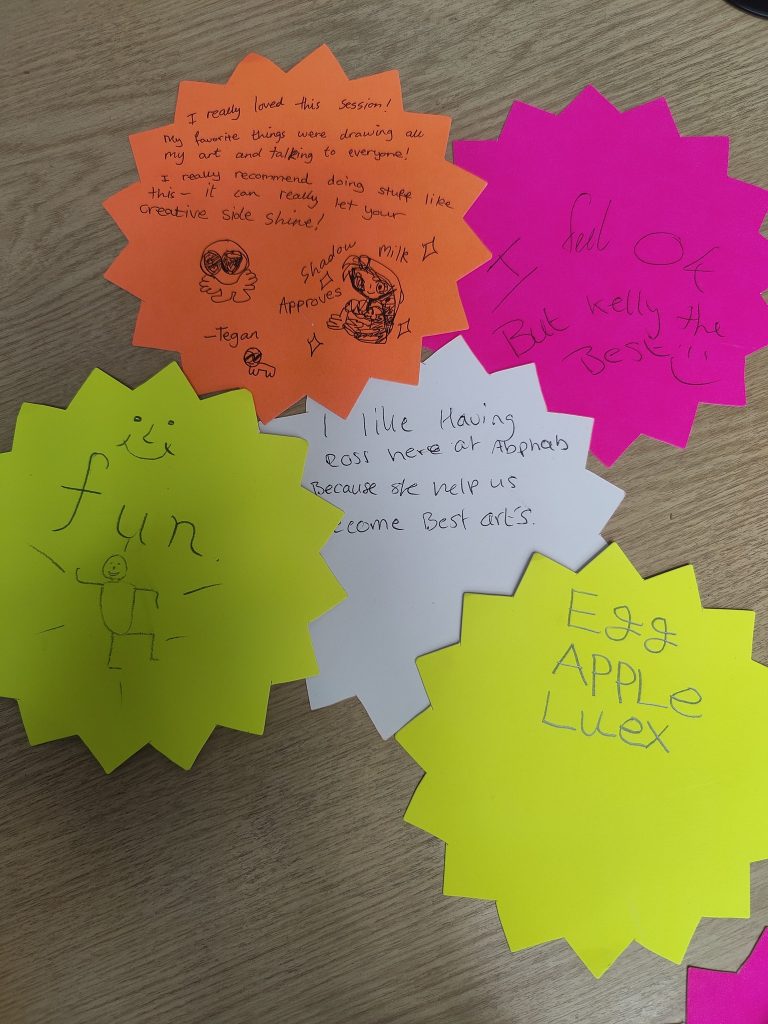 I really loved this session!
My favorite things were drawing all
my art and talking to everyone!
I really recommend doing stuff like
this - it can really let your
creative side shine!
Shadow Milk
Approves
-Tegan
I feel Ok
But kelly the
Best
fun.
I like Having
ross here at Abphab
Because she help us
ecome Best art's.
Egg
APPLe
Luex